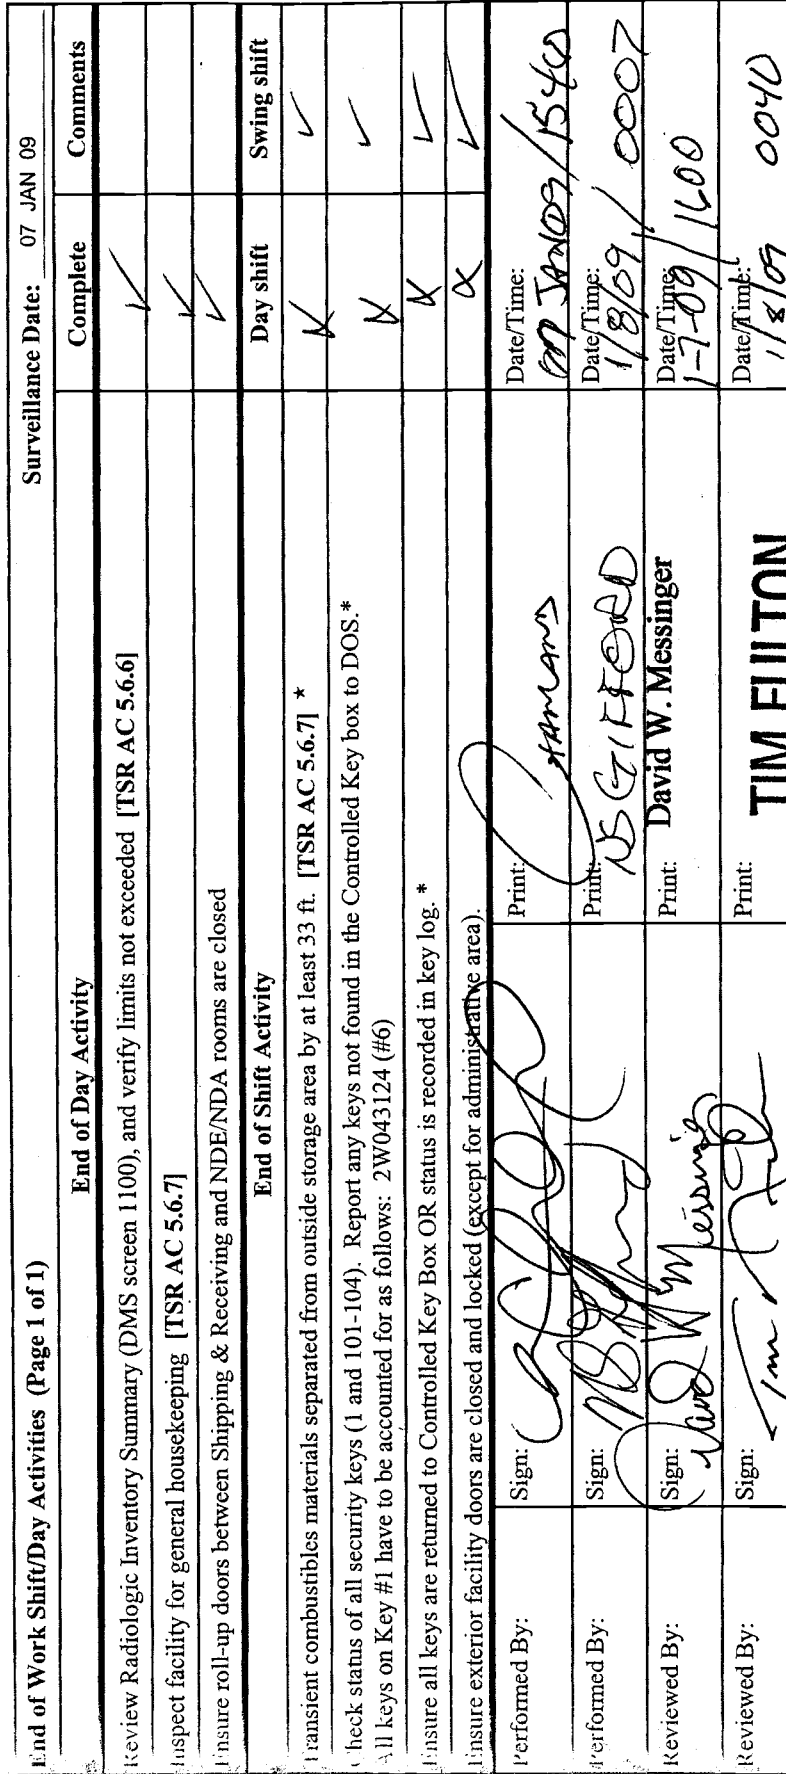 End of Work Shift/Day Activities (Page 1 of 1) Surveillance Date: 07 JAN 09
End of Day Activity Complete Comments
Review Radiologic Inventory Summary (DMS screen 1100), and verify limits not exceeded [TSR AC 5.6.6] ✓
Inspect facility for general housekeeping [TSR AC 5.6.7] ✓
Ensure roll-up doors between Shipping & Receiving and NDE/NDA rooms are closed ✓
End of Shift Activity Day shift Swing shift
Transient combustibles materials separated from outside storage area by at least 33 ft. [TSR AC 5.6.7] * X ✓
Check status of all security keys (1 and 101-104). Report any keys not found in the Controlled Key box to DOS.* X ✓
All keys on Key #1 have to be accounted for as follows: 2W043124 (#6)
Ensure all keys are returned to Controlled Key Box OR status is recorded in key log. * X ✓
Ensure exterior facility doors are closed and locked (except for administrative area). X ✓
Performed By: Sign: Print: Date/Time: JAN09/1540
Performed By: Sign: Print: NS GIFFORD Date/Time: 1/8/09 / 0007
Reviewed By: Sign: David W Messinger Print: David W. Messinger Date/Time: 1-7-09 / 1600
Reviewed By: Sign: Print: TIM FULTON Date/Time: 1/8/09 0040